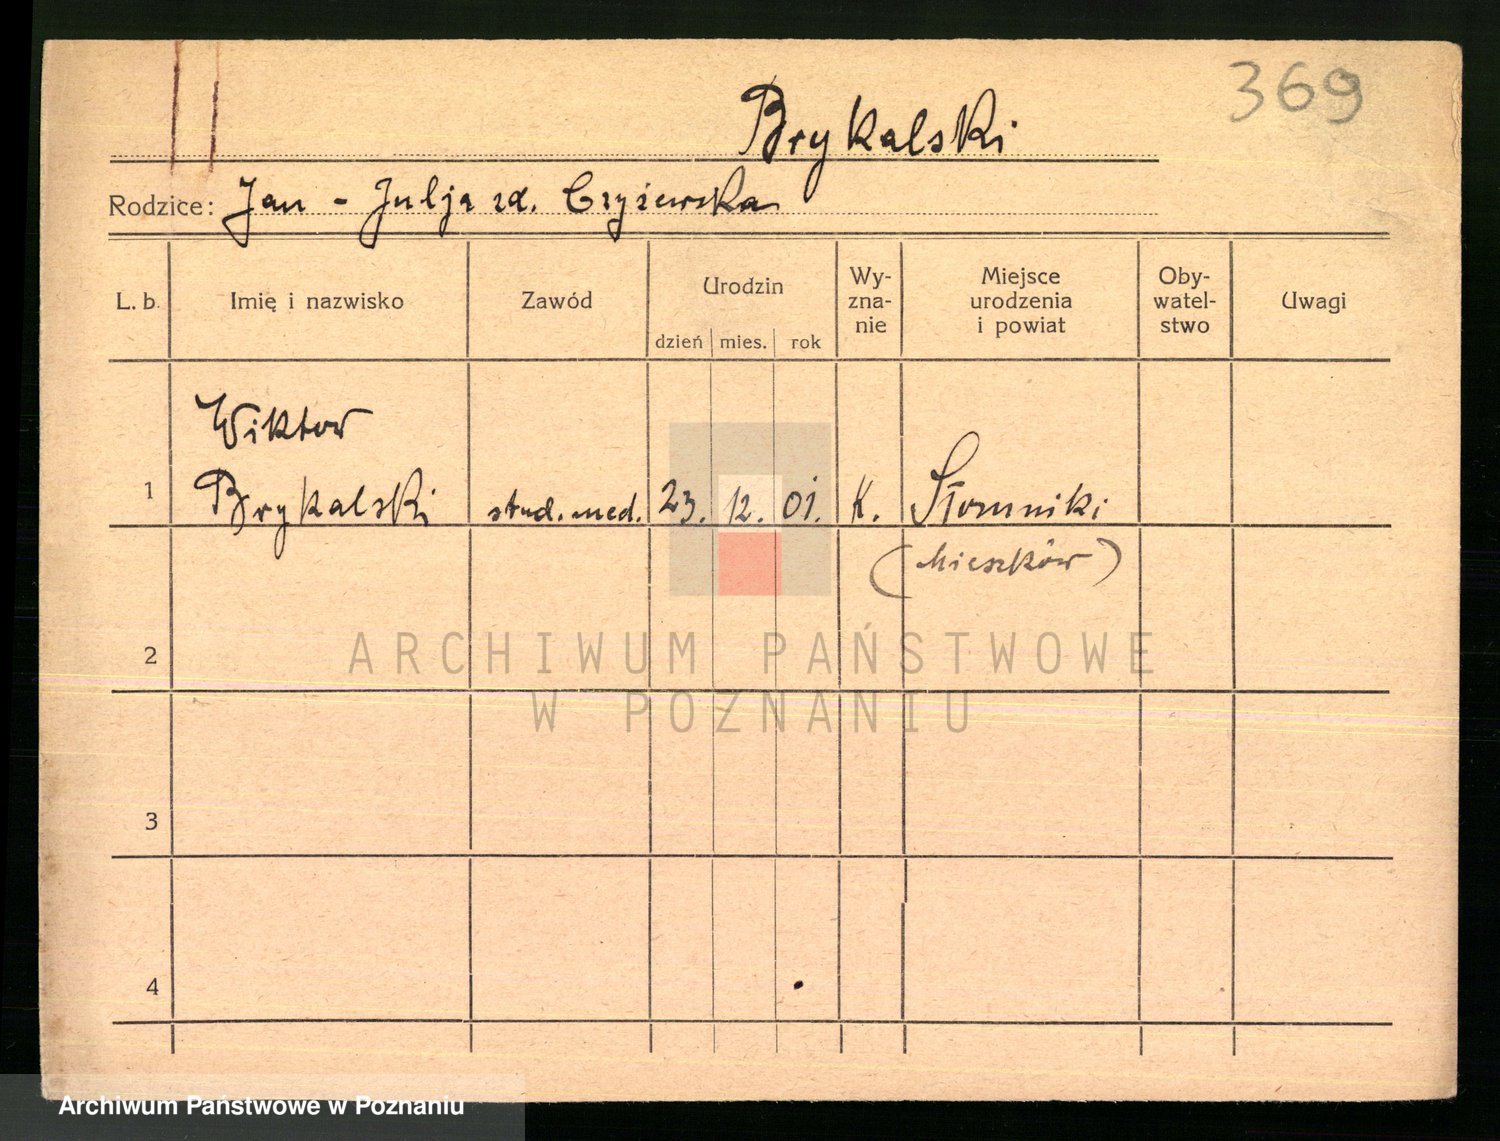 369
Brykalski
Rodzice: Jan - Julja zd. Czyżewska
L. b. Imię i nazwisko Zawód Urodzin dzień mies. rok Wy-zna-nie Miejsce urodzenia i powiat Oby-watel-stwo Uwagi
Wiktor
1 Brykalski stud. med. 23. 12. 01. K. Słomniki
(Mieszków)
2
3
4
ARCHIWUM PAŃSTWOWE
W POZNANIU
Archiwum Państwowe w Poznaniu